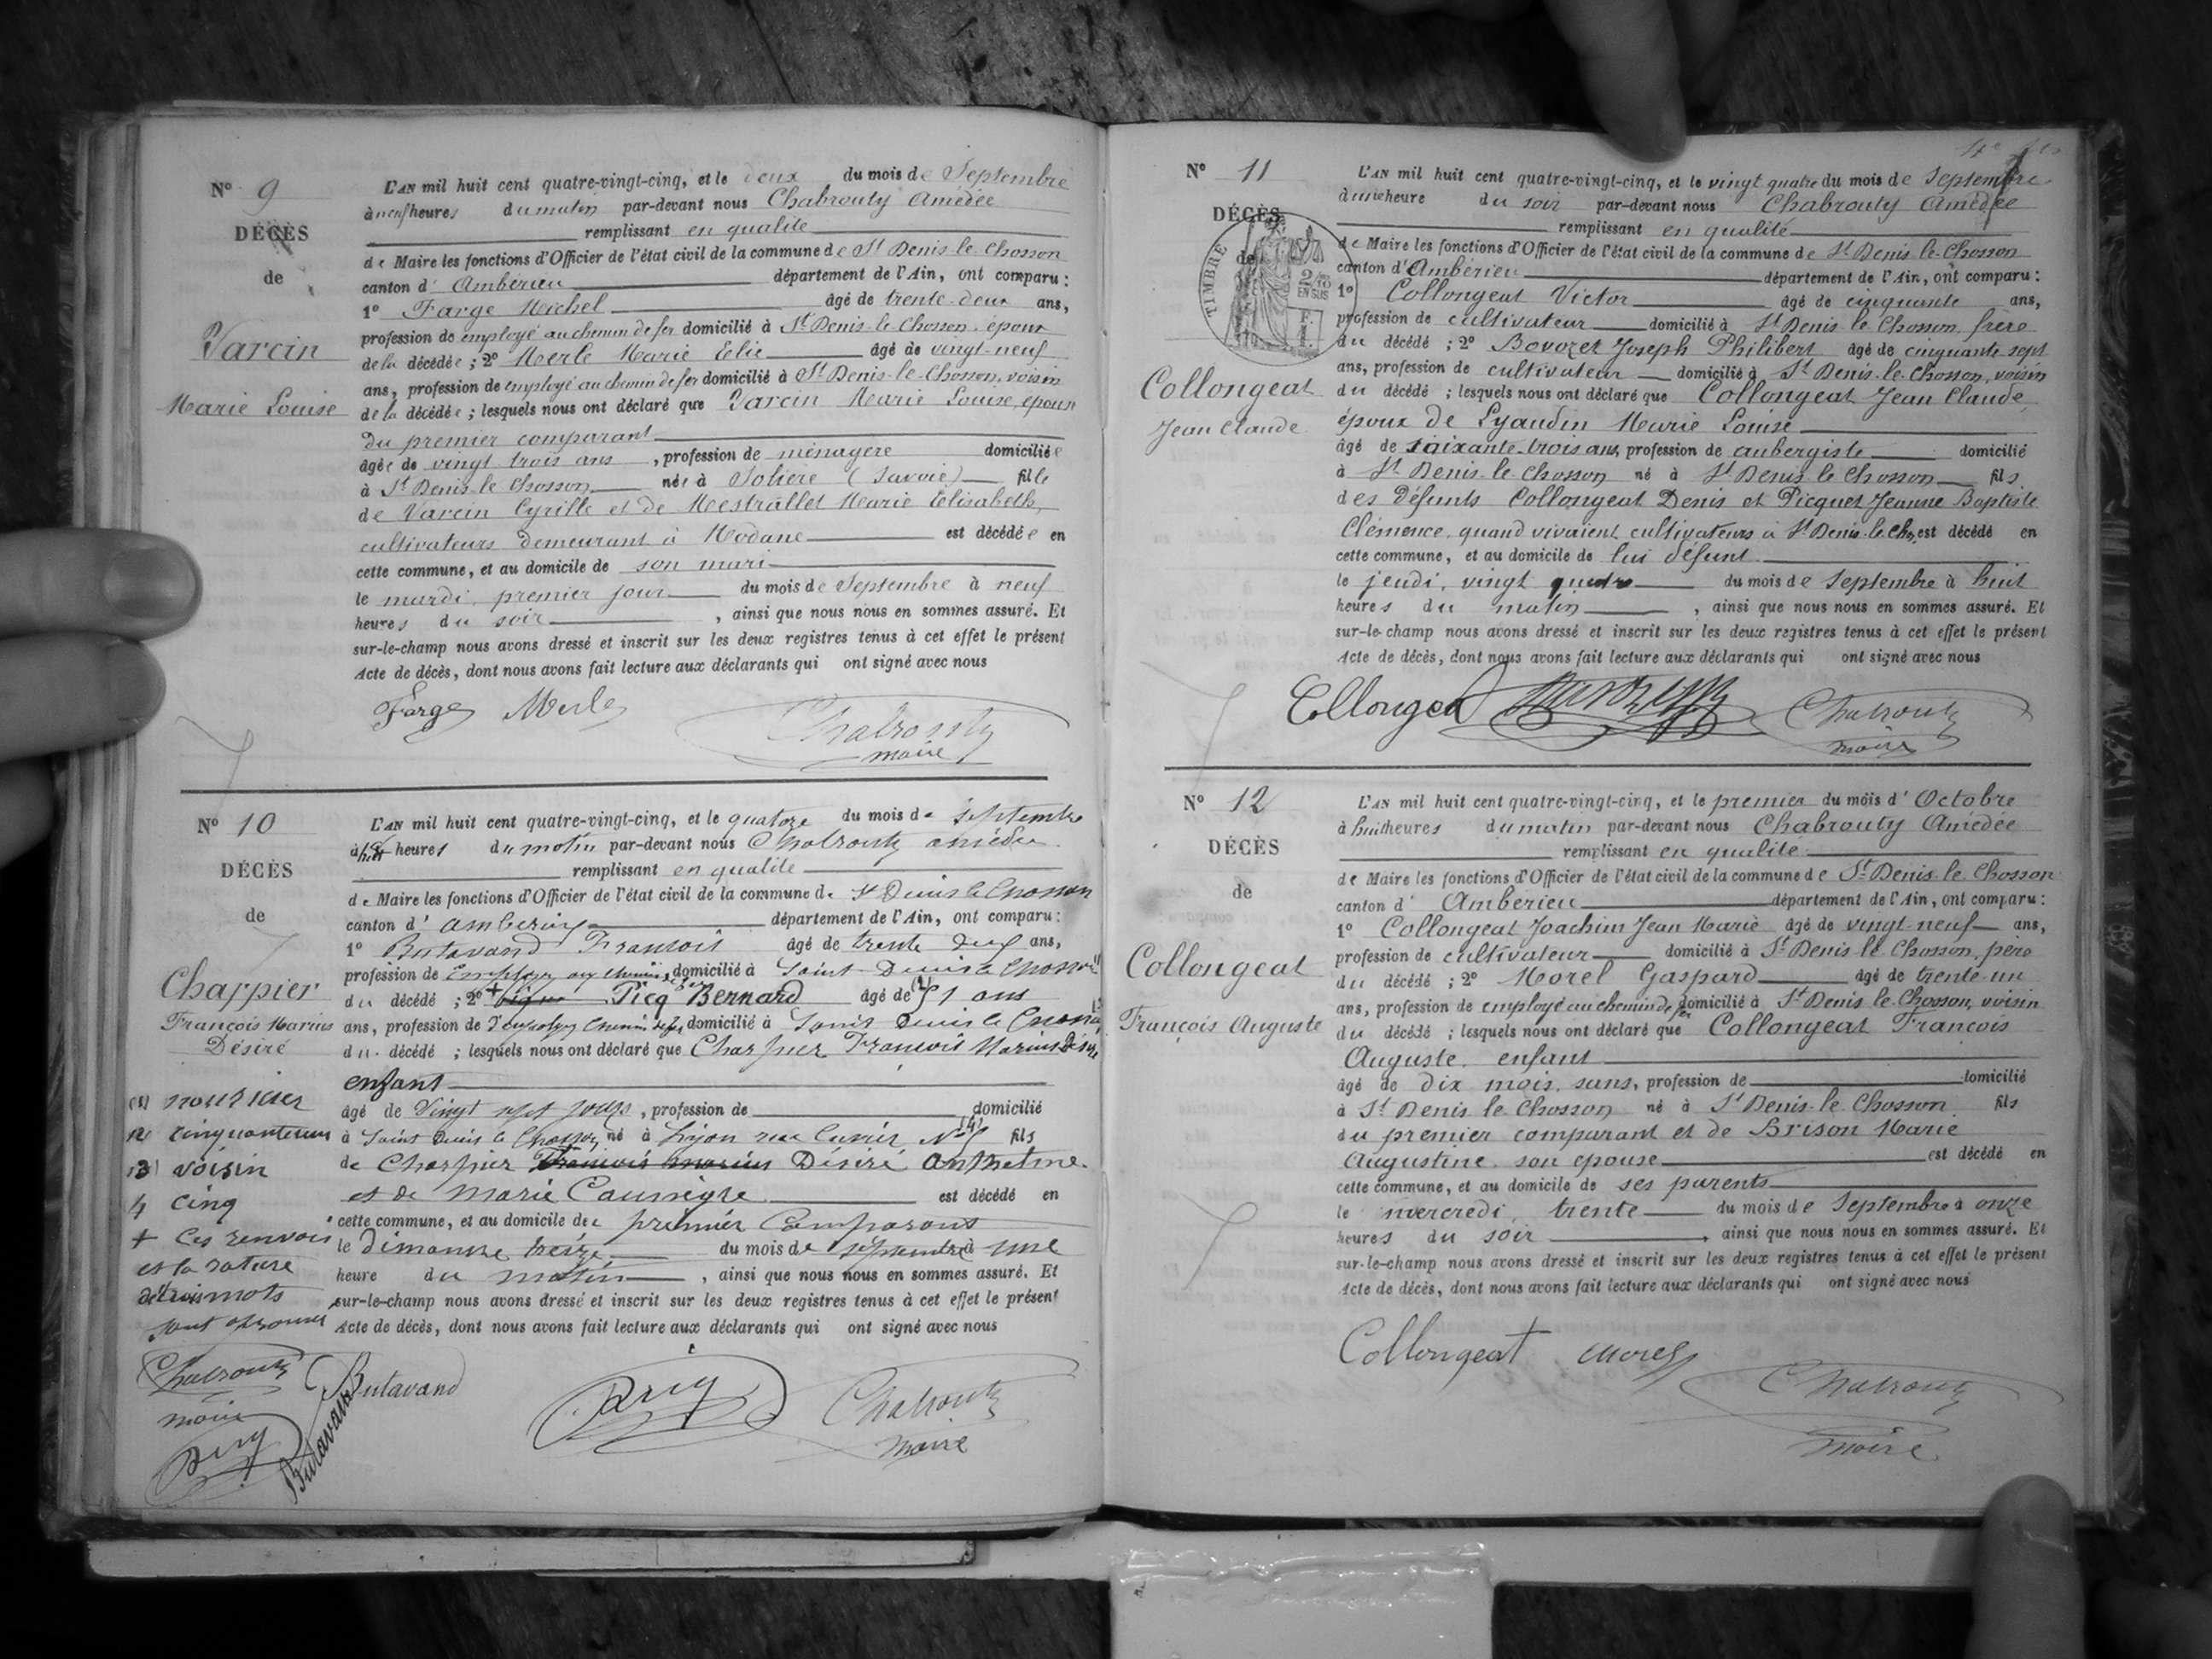 N° 9
DÉCÈS
de
Varcin
Marie Louise
L'AN mil huit cent quatre-vingt-cinq, et le deux du mois de Septembre
à neuf heures du matin par-devant nous Chabrouty Amédée
remplissant en qualité
de Maire les fonctions d'Officier de l'état civil de la commune de St Denis-le-Chosson
canton d' Ambérieu département de l'Ain, ont comparu :
1° Farge Michel âgé de trente-deux ans,
profession de employé au chemin de fer domicilié à St Denis-le-Chosson, époux
de la décédée ; 2° Merle Marie Elie âgé de vingt-neuf
ans, profession de employé au chemin de fer domicilié à St Denis-le-Chosson, voisin
de la décédée ; lesquels nous ont déclaré que Varcin Marie Louise, épouse
du premier comparant
âgée de vingt trois ans , profession de ménagère domiciliée
à St Denis-le-Chosson née à Solière (Savoie) fille
de Varcin Cyrille et de Mestrallet Marie Elisabeth,
cultivateurs demeurant à Modane est décédée en
cette commune, et au domicile de son mari
le mardi, premier jour du mois de Septembre à neuf
heures du soir , ainsi que nous nous en sommes assuré. Et
sur-le-champ nous avons dressé et inscrit sur les deux registres tenus à cet effet le présent
Acte de décès, dont nous avons fait lecture aux déclarants qui ont signé avec nous
Farge Merle Chabrouty
maire
N° 10
DÉCÈS
de
Charpier
François Marius
Désiré
(1) nouricier
(2) cinquante un
(3) voisin
4 cinq
+ Ces renvois
et la rature
de trois mots
sont aprouvés
Chabrouty
maire
Picq
Butavand
L'AN mil huit cent quatre-vingt-cinq, et le quatorze du mois de septembre
à huit heures du matin par-devant nous Chabrouty amédée
remplissant en qualité
de Maire les fonctions d'Officier de l'état civil de la commune de St Denis le Chosson
canton d' amberieu département de l'Ain, ont comparu :
1° Butavand François âgé de trente deux ans,
profession de Employé aux chemin de fer domicilié à Saint Denis le Chosson (1)
du décédé ; 2° + Picq Bernard âgé de (2) 51 ans
ans, profession de Employé Chemin de fer, domicilié à Saint Denis le Chosson (3)
du décédé ; lesquels nous ont déclaré que Charpier François Marius Désiré
enfant
âgé de Vingt sept jours , profession de domicilié
à Saint Denis le Chosson né à Lyon rue Cuvier N° 5 (4) fils
de Charpier François marius Désiré Anthelme
et de Marie est décédé en
cette commune, et au domicile de premier Comparant
le Dimanche treize du mois de septembre à une
heure du matin , ainsi que nous nous en sommes assuré. Et
sur-le-champ nous avons dressé et inscrit sur les deux registres tenus à cet effet le présent
Acte de décès, dont nous avons fait lecture aux déclarants qui ont signé avec nous
Butavand Picq Chabrouty
maire
N° 11
DÉCÈS
de
TIMBRE
Collongeat
Jean Claude
L'AN mil huit cent quatre-vingt-cinq, et le vingt quatre du mois de Septembre
à une heure du soir par-devant nous Chabrouty Amédée
remplissant en qualité
de Maire les fonctions d'Officier de l'état civil de la commune de St Denis-le-Chosson
canton d' Ambérieu département de l'Ain, ont comparu :
1° Collongeat Victor âgé de cinquante ans,
profession de cultivateur domicilié à St Denis-le-Chosson, frère
du décédé ; 2° Bovozet Joseph Philibert âgé de cinquante sept
ans, profession de cultivateur domicilié à St Denis-le-Chosson, voisin
du décédé ; lesquels nous ont déclaré que Collongeat Jean Claude,
époux de Lyaudin Marie Louise
âgé de soixante-trois ans, profession de aubergiste domicilié
à St Denis-le-Chosson né à St Denis le Chosson fils
des défunts Collongeat Denis et Picquet Jeanne Baptiste
Clémence, quand vivaient cultivateurs à St Denis-le-Chon, est décédé en
cette commune, et au domicile de lui défunt
le jeudi, vingt quatre du mois de Septembre à huit
heures du matin , ainsi que nous nous en sommes assuré. Et
sur-le-champ nous avons dressé et inscrit sur les deux registres tenus à cet effet le présent
Acte de décès, dont nous avons fait lecture aux déclarants qui ont signé avec nous
Collongeat Chabrouty
maire
N° 12
DÉCÈS
de
Collongeat
François Auguste
L'AN mil huit cent quatre-vingt-cinq, et le premier du mois d' Octobre
à huit heures du matin par-devant nous Chabrouty Amédée
remplissant en qualité
de Maire les fonctions d'Officier de l'état civil de la commune de St Denis-le-Chosson
canton d' Ambérieu département de l'Ain, ont comparu :
1° Collongeat Joachim Jean Marie âgé de vingt-neuf ans,
profession de cultivateur domicilié à St Denis-le-Chosson, père
du décédé ; 2° Morel Gaspard âgé de trente-un
ans, profession de employé au chemin de fer domicilié à St Denis-le-Chosson, voisin
du décédé ; lesquels nous ont déclaré que Collongeat François
Auguste, enfant
âgé de dix mois, sans, profession de domicilié
à St Denis-le-Chosson né à St Denis-le-Chosson fils
du premier comparant et de Brison Marie
Augustine, son épouse est décédé en
cette commune, et au domicile de ses parents
le mercredi, trente du mois de Septembre à onze
heures du soir , ainsi que nous nous en sommes assuré. Et
sur-le-champ nous avons dressé et inscrit sur les deux registres tenus à cet effet le présent
Acte de décès, dont nous avons fait lecture aux déclarants qui ont signé avec nous
Collongeat Morel Chabrouty
maire